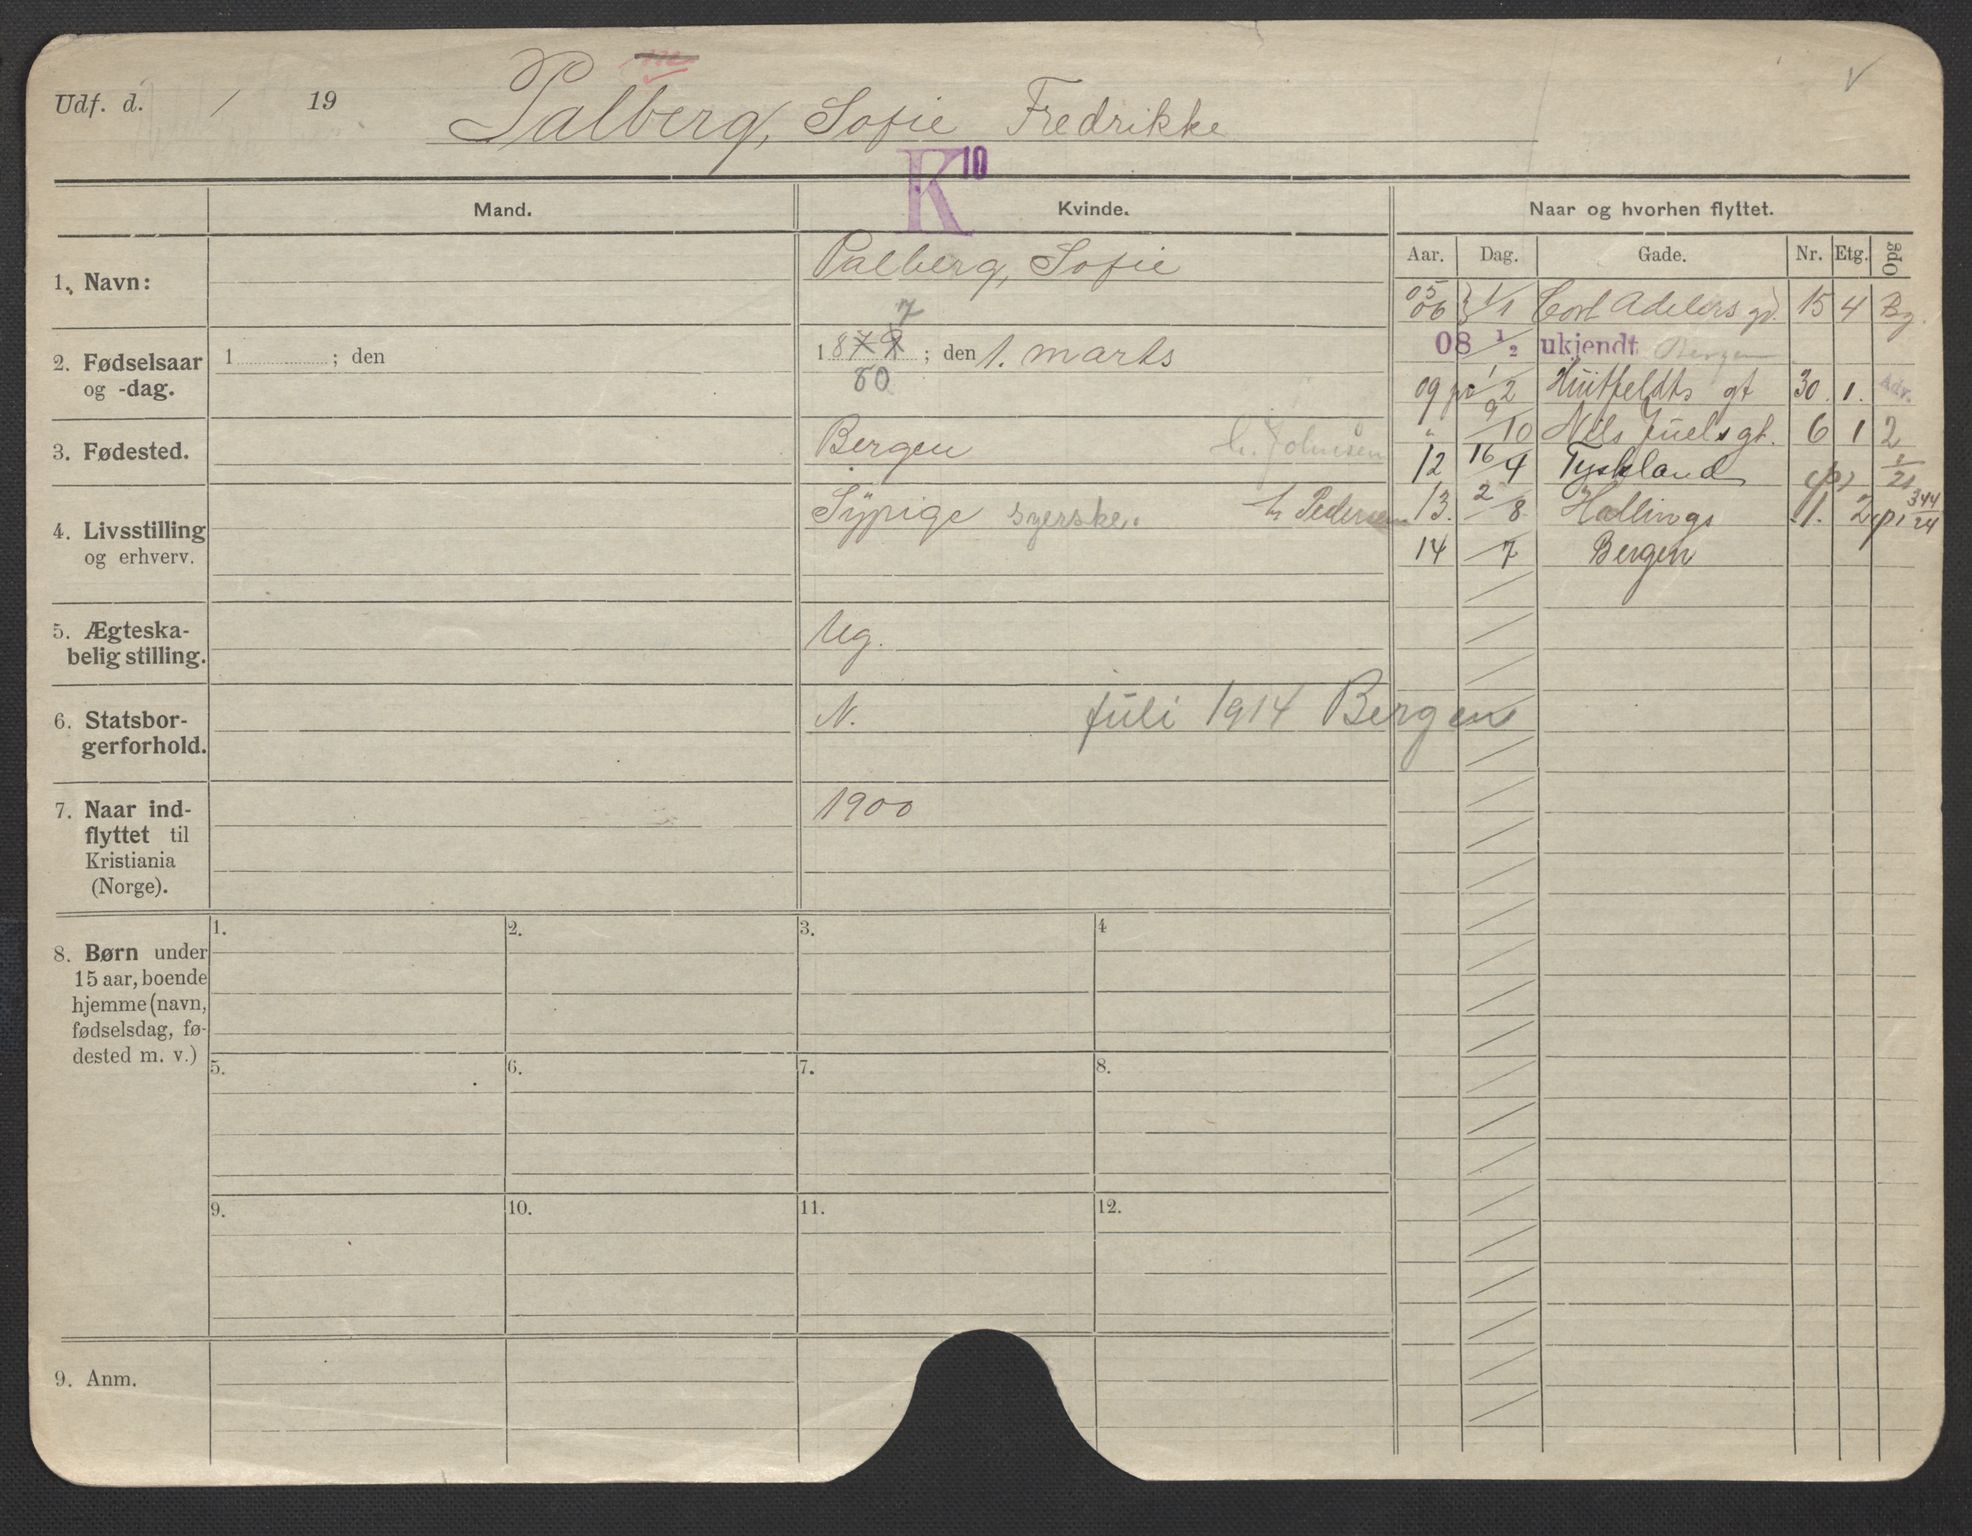 Udf. d. / 19
Palberg, Sofie Fredrikke
K 10
Mand. Kvinde. Naar og hvorhen flyttet.
Aar. Dag. Gade. Nr. Etg. Opg
1. Navn:
Palberg, Sofie
2. Fødselsaar og -dag.
1 ; den
1879 ; den 1. marts
7
80
3. Fødested.
Bergen h. Johnsen
4. Livsstilling og erhverv.
Sypige syerske. h Pedersen
5. Ægteska-
belig stilling.
Ug.
6. Statsbor-
gerforhold.
N. juli 1914 Bergen
7. Naar ind-
flyttet til
Kristiania
(Norge).
1900
8. Børn under
15 aar, boende
hjemme (navn,
fødselsdag, fø-
dested m. v.)
1. 2. 3. 4
5. 6. 7. 8.
9. 10. 11. 12.
9. Anm.
05
06 1/1 Cort Adelers gd. 15 4 Bg.
08 1/2 ukjendt Bergen
09 1/2 Huitfeldts gt 30. 1. Adv.
" 9/10 Nels Juels gt. 6 1 2
12 16/9 Tyskland
13. 2/8 Hallings 1. 2
14 /7 Bergen